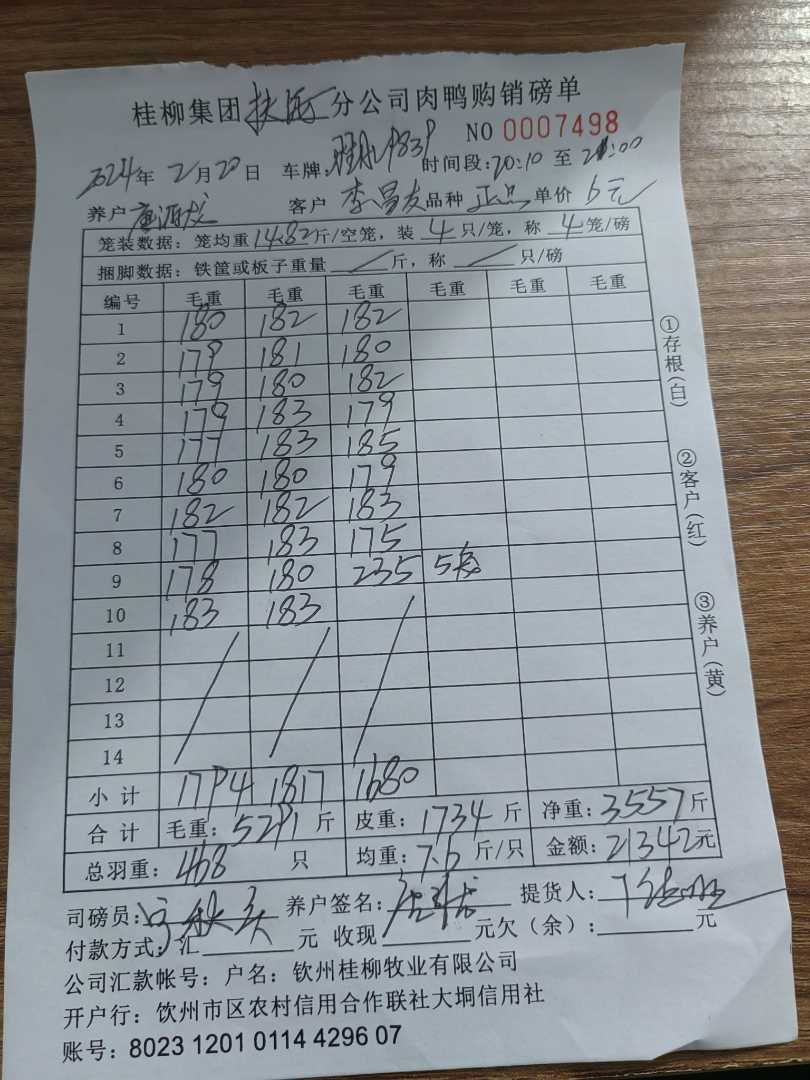 桂柳集团 分公司肉鸭购销磅单
NO 0007498
2024年 2月20日 车牌: 时间段:20:10 至 21:00
养户 客户 李昌友 品种 正品 单价 6元
笼装数据: 笼均重14.82斤/空笼, 装 4 只/笼, 称 4 笼/磅
捆脚数据: 铁筐或板子重量 / 斤, 称 / 只/磅
编号 毛重 毛重 毛重 毛重 毛重 毛重
1 180 182 182
2 179 181 180
3 179 180 182
4 179 183 179
5 177 183 185
6 180 180 179
7 182 182 183
8 177 183 175
9 178 180 235 5笼
10 183 183
11
12
13
14
小计 1794 1817 1680
合计 毛重: 5291 斤 皮重: 1734 斤 净重: 3557斤
总羽重: 468 只 均重: 7.6 斤/只 金额: 21342元
司磅员: 养户签名: 提货人:
付款方式: 汇 元 收现 元欠(余): 元
公司汇款帐号: 户名: 钦州桂柳牧业有限公司
开户行: 饮州市区农村信用合作联社大垌信用社
账号: 8023 1201 0114 4296 07
①存根(白)
②客户(红)
③养户(黄)